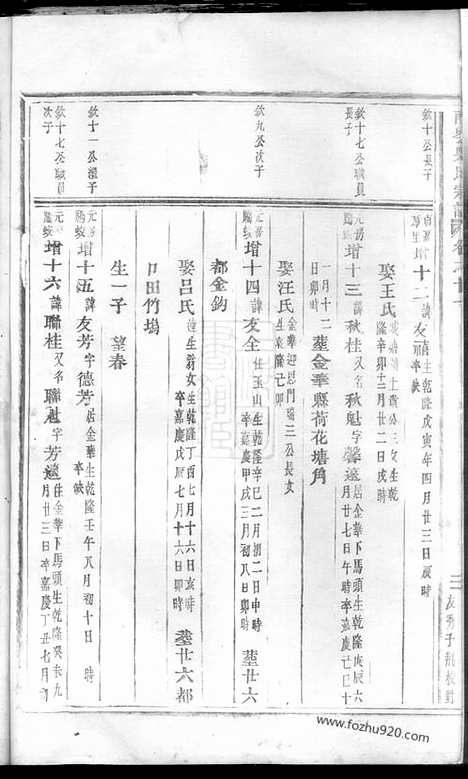 欽十公長子
增十二諱友蘭生乾隆戊寅年四月廿三日辰時
卒缺
娶王氏
隆辛卯十二月廿二日戌時
欽十七公職員
長子
增十三諱秋桂又名秋魁字馨遠居金華下馬頭生乾隆庚辰六
月廿七日午時卒嘉慶己巳十
一月十二
日卯時
葬金華縣荷花塘角
娶汪氏金華迎恩門瑞三公長女
欽九公次子
增十四諱友全住玉山生乾隆辛巳二月初二日申時
卒嘉慶甲戌三月初八日卯時
葬廿六
都金鈎
娶呂氏
生乾隆丁酉七月十六日亥時
卒嘉慶戊辰七月十六日卯時
葬廿六都
口田竹塢
生一子 望春
欽十一公繼子
增十五諱友芳字德芳居金華生乾隆壬午八月初十日 時
卒缺
欽十七公職員
次子
增十六諱聯桂又名聯魁字芳遠住金華下馬頭生乾隆癸未九
月廿三日卒嘉慶丁丑七月初
三
www.fozhu920.com